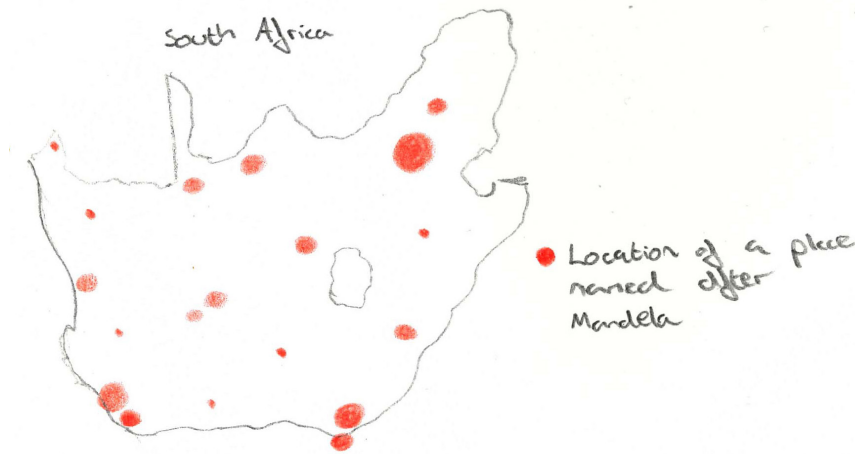 South Africa
Location of a place
named after
Mandela